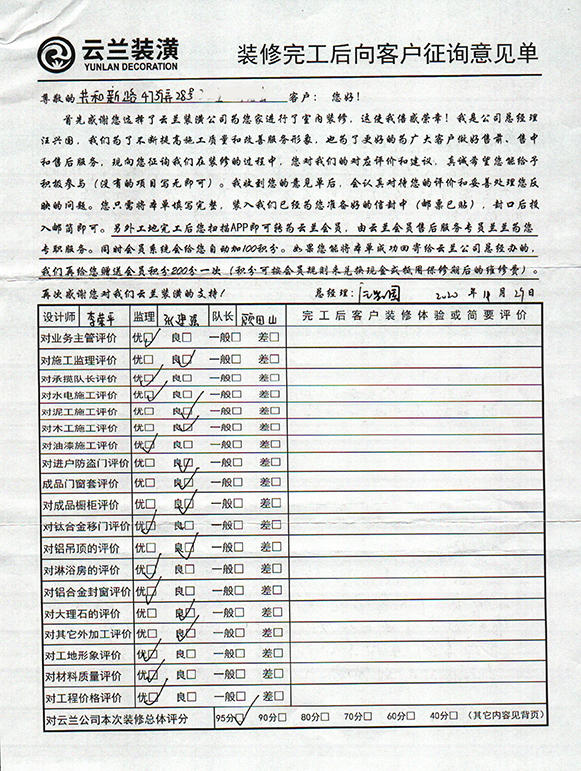 云兰装潢
YUNLAN DECORATION
装修完工后向客户征询意见单
尊敬的 共和新路475弄28号 客户：您好！
首先感谢您选择了云兰装潢公司为您家进行了室内装修，这使我倍感荣幸！我是公司总经理
汪兴国，我们为了不断提高施工质量和改善服务形象，也为了更好的为广大客户做好售前、售中
和售后服务，现向您征询我们在装修的过程中，您对我们的对应评价和建议，真诚希望您能给予
积极参与（没有的项目写无即可）。我收到您的意见单后，会认真对待您的评价和妥善处理您反
映的问题。您只需将本单填写完整，装入我们已经为您准备好的信封中（邮票已贴），封口后投
入邮筒即可。另外工地完工后您扫描APP即可转为云兰会员，由云兰会员售后服务专员兰兰为您
专职服务。同时会员系统会给您自动加100积分。如果您能将本单成功回寄给云兰公司总经办的，
我们再给您赠送会员积分200分一次（积分可按会员规则来兑换现金或按用保修期后的维修费）。
再次感谢您对我们云兰装潢的支持！ 总经理： 汪兴国 2020 年 月 29日
设计师 李荣平 监理 队长 顾田山 完工后客户装修体验或简要评价
对业务主管评价 优□ 良□ 一般□ 差□
对施工监理评价 优□ 良□ 一般□ 差□
对承揽队长评价 优□ 良□ 一般□ 差□
对水电施工评价 优□ 良□ 一般□ 差□
对泥工施工评价 优□ 良□ 一般□ 差□
对木工施工评价 优□ 良□ 一般□ 差□
对油漆施工评价 优□ 良□ 一般□ 差□
对进户防盗门评价 优□ 良□ 一般□ 差□
成品门窗套评价 优□ 良□ 一般□ 差□
对成品橱柜评价 优□ 良□ 一般□ 差□
对钛合金移门评价 优□ 良□ 一般□ 差□
对铝吊顶的评价 优□ 良□ 一般□ 差□
对淋浴房的评价 优□ 良□ 一般□ 差□
对铝合金封窗评价 优□ 良□ 一般□ 差□
对大理石的评价 优□ 良□ 一般□ 差□
对其它外加工评价 优□ 良□ 一般□ 差□
对工地形象评价 优□ 良□ 一般□ 差□
对材料质量评价 优□ 良□ 一般□ 差□
对工程价格评价 优□ 良□ 一般□ 差□
对云兰公司本次装修总体评分 95分□ 90分□ 80分□ 70分□ 60分□ 40分□ （其它内容见背页）